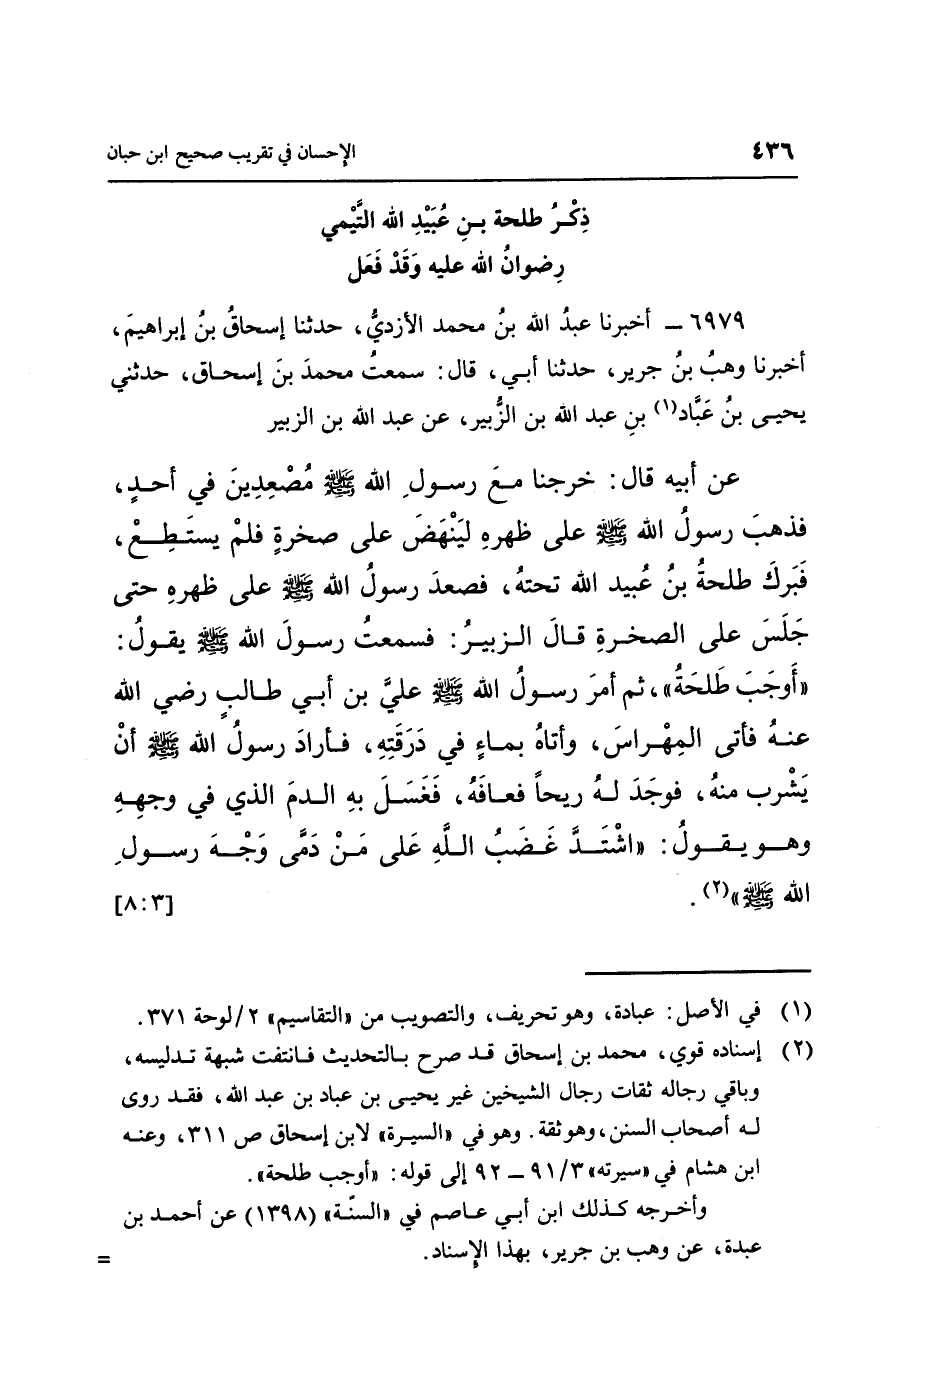 ٤٣٦ الإحسان في تقريب صحيح ابن حبان
ذِكْرُ طلحة بنِ عُبَيْدِ الله التَّيْمي
رِضوانُ الله عليه وَقَدْ فَعَل
٦٩٧٩ ـ أخبرنا عبدُ الله بنُ محمد الأزديُّ، حدثنا إسحاقُ بنُ إبراهيمَ،
أخبرنا وهبُ بنُ جرير، حدثنا أبي، قال: سمعتُ محمدَ بنَ إسحاق، حدثني
يحيى بنُ عَبَّاد(١) بنِ عبد الله بن الزُّبير، عن عبد الله بن الزبير
عن أبيه قال: خرجنا معَ رسولِ الله ﷺ مُصْعِدِينَ في أحدٍ،
فذهبَ رسولُ الله ﷺ على ظهرهِ لِيَنْهَضَ على صخرةٍ فلمْ يستَطِعْ،
فَبَركَ طلحةُ بنُ عُبيد الله تحتهُ، فصعدَ رسولُ الله ﷺ على ظهرهِ حتى
جَلَسَ على الصخرةِ قالَ الزبيرُ: فسمعتُ رسولَ الله ﷺ يقولُ:
«أَوجَبَ طَلحَةُ»، ثم أمرَ رسولُ الله ﷺ عليَّ بن أبي طالبٍ رضي الله
عنهُ فأتى المِهْراسَ، وأتاهُ بماءٍ في دَرَقَتِهِ، فأرادَ رسولُ الله ﷺ أنْ
يَشْرب منهُ، فوجَدَ لهُ ريحاً فعافَهُ، فَغَسَلَ بهِ الدمَ الذي في وجهِهِ
وهو يقولُ: «اشْتَدَّ غَضَبُ اللَّهِ عَلى مَنْ دَمَّى وَجْهَ رسولِ
الله ﷺ»(٢). [٨:٣]
(١) في الأصل: عبادة، وهو تحريف، والتصويب من «التقاسيم» ٢/لوحة ٣٧١.
(٢) إسناده قوي، محمد بن إسحاق قد صرح بالتحديث فانتفت شبهة تدليسه،
وباقي رجاله ثقات رجال الشيخين غير يحيى بن عباد بن عبد الله، فقد روى
له أصحاب السنن، وهو ثقة. وهو في «السيرة» لابن إسحاق ص ٣١١، وعنه
ابن هشام في «سيرته» ٩١/٣ ـ ٩٢ إلى قوله: «أوجب طلحة».
وأخرجه كذلك ابن أبي عاصم في «السنّة» (١٣٩٨) عن أحمد بن
عبدة، عن وهب بن جرير، بهذا الإسناد. =